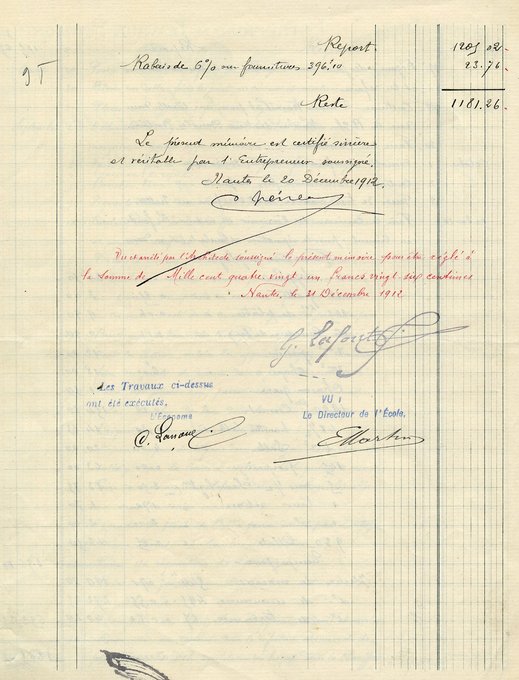 Report. 1205.02
Rabais de 6% sur fournitures 396.10 23.76
Reste 1181.26
Le présent mémoire est certifié sincère
et véritable par l'Entrepreneur soussigné.
Nantes le 20 Décembre 1912
Vu et arrêté par l'Architecte soussigné le présent mémoire pour être réglé à
la somme de Mille cent quatre vingt un francs vingt six centimes
Nantes, le 31 Décembre 1912
Les Travaux ci-dessus
ont été exécutés.
L'Econome
VU :
Le Directeur de l'École.
EMartin